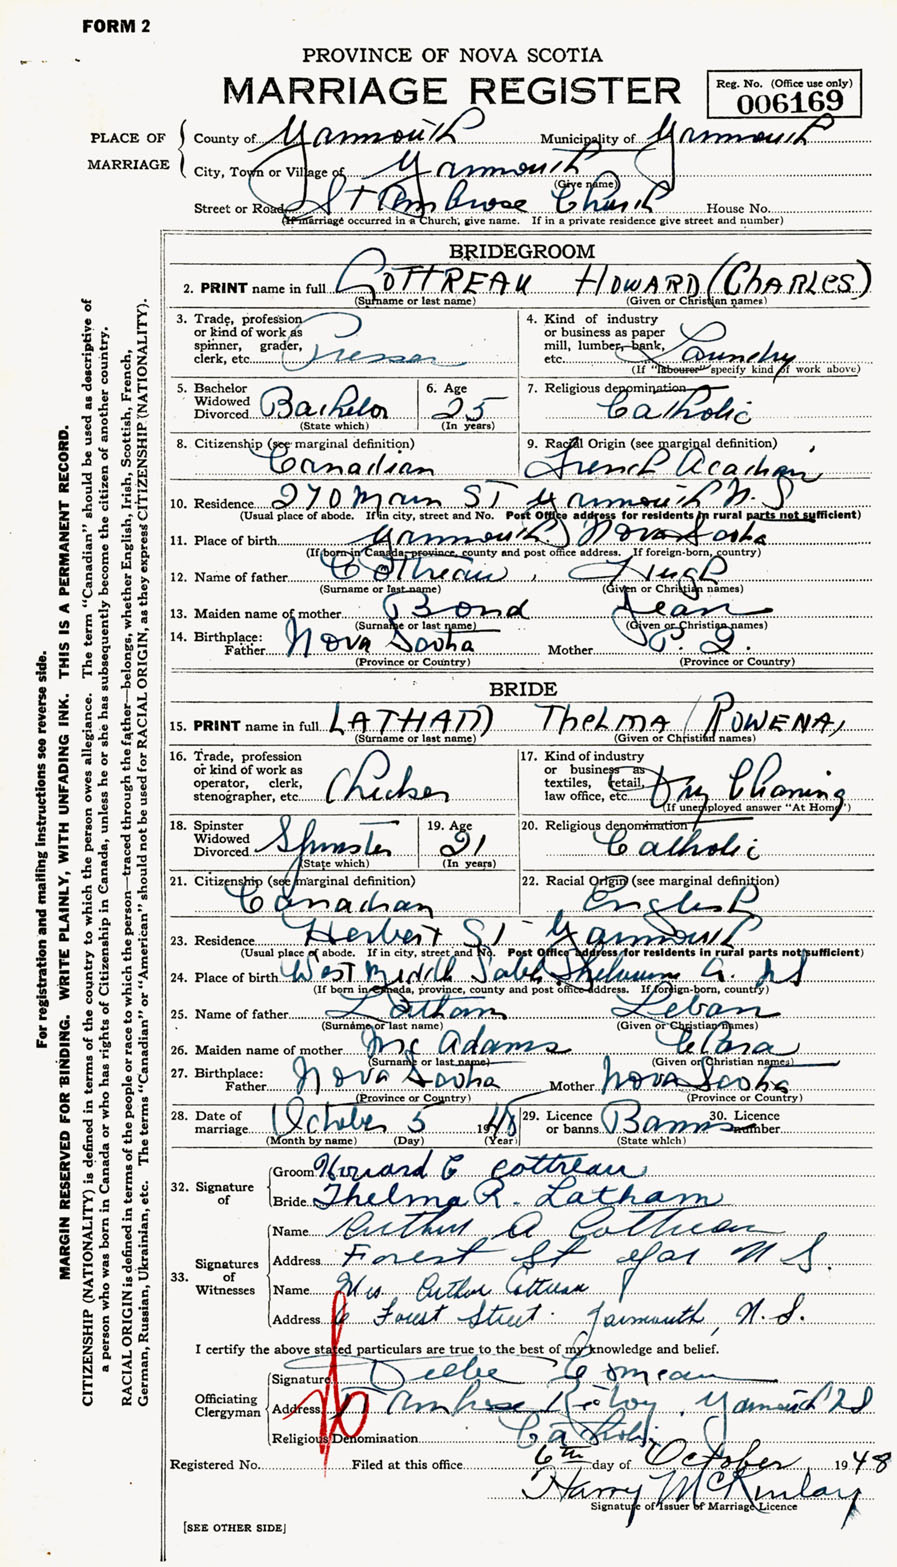 FORM 2
PROVINCE OF NOVA SCOTIA
MARRIAGE REGISTER
Reg. No. (Office use only)
006169
PLACE OF MARRIAGE
County of Yarmouth Municipality of Yarmouth
City, Town or Village of Yarmouth
(Give name)
Street or Road St Ambrose Church House No.
(If marriage occurred in a Church, give name. If in a private residence give street and number)
BRIDEGROOM
2. PRINT name in full COTTREAU HOWARD (CHARLES)
(Surname or last name) (Given or Christian names)
3. Trade, profession or kind of work as spinner, grader, clerk, etc. Presser
4. Kind of industry or business as paper mill, lumber, bank, etc. Laundry
(If "labourer" specify kind of work above)
5. Bachelor Widowed Divorced Bachelor
(State which)
6. Age 25
(In years)
7. Religious denomination Catholic
8. Citizenship (see marginal definition) Canadian
9. Racial Origin (see marginal definition) French Acadian
10. Residence 270 Main ST Yarmouth N.S
(Usual place of abode. If in city, street and No. Post Office address for residents in rural parts not sufficient)
11. Place of birth Yarmouth Nova Scotia
(If born in Canada, province, county and post office address. If foreign-born, country)
12. Name of father Cottreau, Hugh
(Surname or last name) (Given or Christian names)
13. Maiden name of mother Bond Jean
(Surname or last name) (Given or Christian names)
14. Birthplace:
Father Nova Scotia Mother P.Q.
(Province or Country) (Province or Country)
BRIDE
15. PRINT name in full LATHAM THELMA (ROWENA)
(Surname or last name) (Given or Christian names)
16. Trade, profession or kind of work as operator, clerk, stenographer, etc. Checker
17. Kind of industry or business as textiles, retail, law office, etc. Dry Cleaning
(If unemployed answer "At Home")
18. Spinster Widowed Divorced Spinster
(State which)
19. Age 21
(In years)
20. Religious denomination Catholic
21. Citizenship (see marginal definition) Canadian
22. Racial Origin (see marginal definition) English
23. Residence Herbert ST Yarmouth
(Usual place of abode. If in city, street and No. Post Office address for residents in rural parts not sufficient)
24. Place of birth West Middle Sable Shelburne Co. NS
(If born in Canada, province, county and post office address. If foreign-born, country)
25. Name of father Latham Leban
(Surname or last name) (Given or Christian names)
26. Maiden name of mother McAdams Clara
(Surname or last name) (Given or Christian names)
27. Birthplace:
Father Nova Scotia Mother Nova Scotia
(Province or Country) (Province or Country)
28. Date of marriage October 5 1948
(Month by name) (Day) (Year)
29. Licence or banns Banns
(State which)
30. Licence number
32. Signature of
Groom Howard C Cottreau
Bride Thelma R. Latham
33. Signatures of Witnesses
Name Arthur A Cottreau
Address Forest St Yar N S.
Name Mrs Arthur Cottreau
Address 6 Forest Street. Yarmouth, N.S.
I certify the above stated particulars are true to the best of my knowledge and belief.
Officiating Clergyman
Signature Comeau
Address St Ambrose Yarmouth NS
Religious Denomination Catholic
Registered No. Filed at this office 6th day of October, 1948
Harry McKinlay
Signature of Issuer of Marriage Licence
[SEE OTHER SIDE]
For registration and mailing instructions see reverse side.
MARGIN RESERVED FOR BINDING. WRITE PLAINLY, WITH UNFADING INK. THIS IS A PERMANENT RECORD.
CITIZENSHIP (NATIONALITY) is defined in terms of the country to which the person owes allegiance. The term "Canadian" should be used as descriptive of
a person who was born in Canada or who has rights of Citizenship in Canada, unless he or she has subsequently become the citizen of another country.
RACIAL ORIGIN is defined in terms of the people or race to which the person—traced through the father—belongs, whether English, Irish, Scottish, French,
German, Russian, Ukrainian, etc. The terms "Canadian" or "American" should not be used for RACIAL ORIGIN, as they express CITIZENSHIP (NATIONALITY).